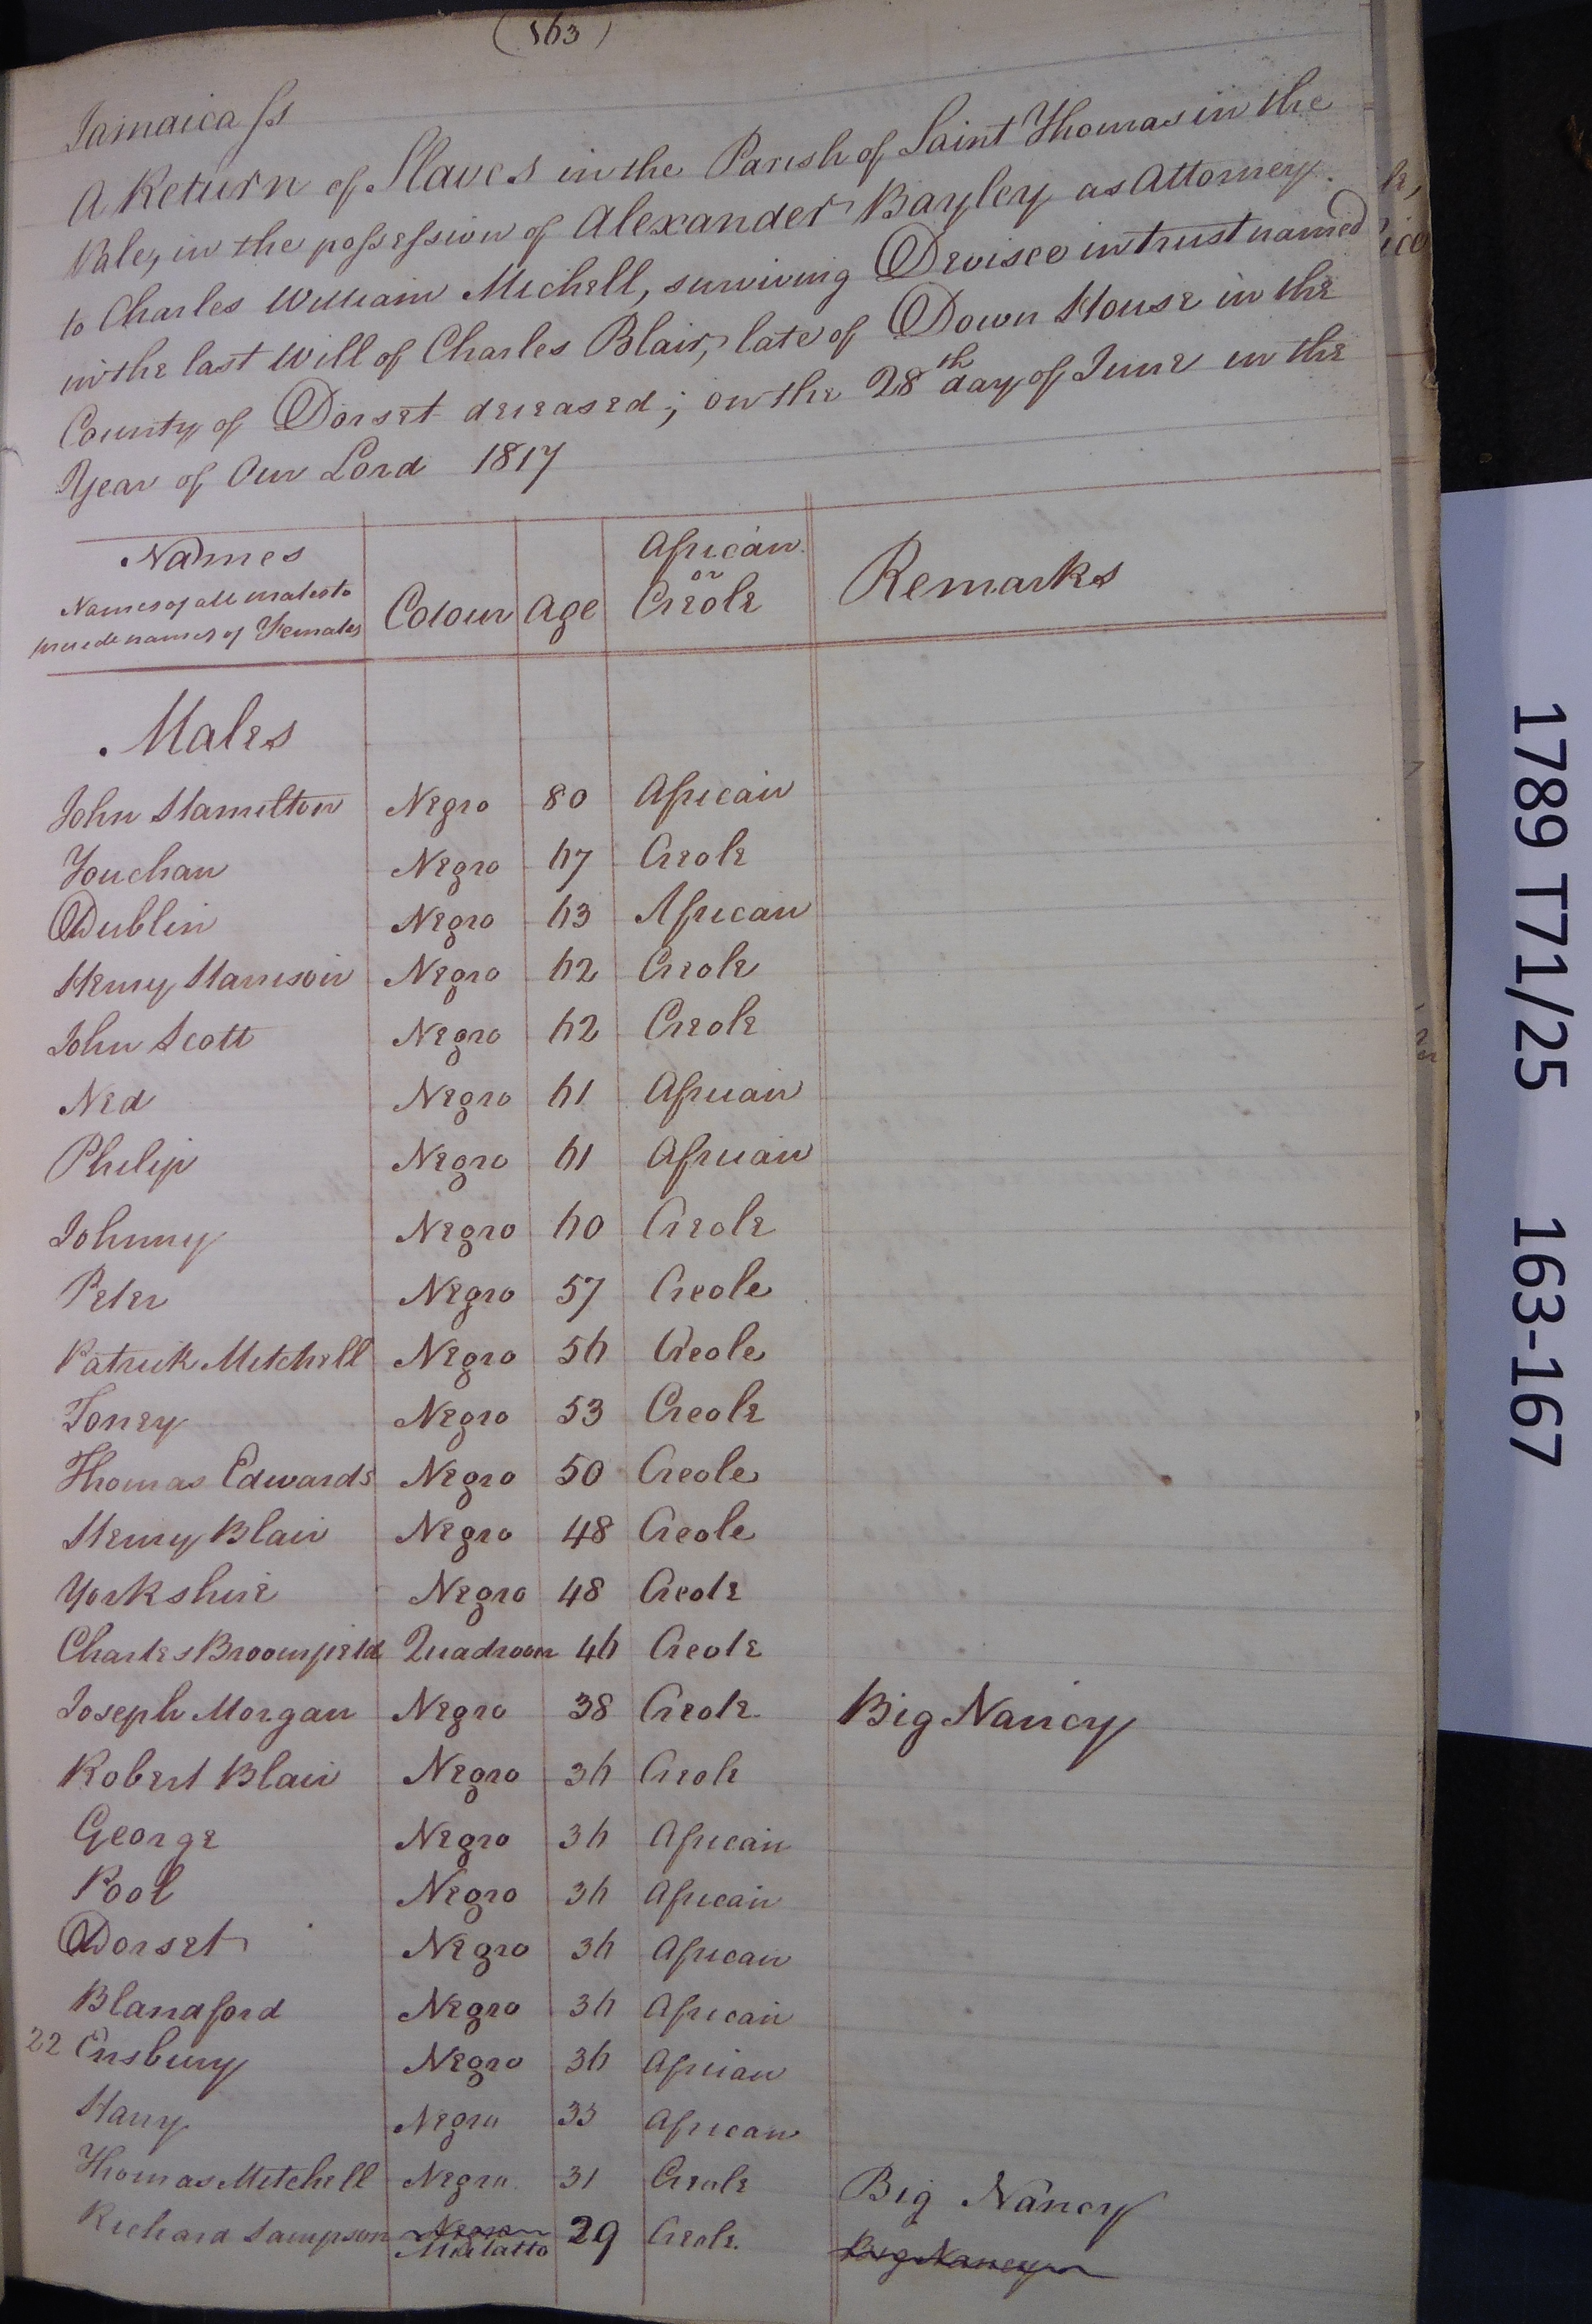 (163)
Jamaica Ss
A Return of Slaves in the Parish of Saint Thomas in the
Vale, in the possession of Alexander Bayley as Attorney
to Charles William Michell, surviving Devisee in trust named
in the last Will of Charles Blair, late of Down House in the
County of Dorset deceased; on the 28th day of June in the
Year of Our Lord 1817
Names
Names of all males to
precede names of Females
Colour Age African or Creole Remarks
Males
John Hamilton Negro 80 African
Youchan Negro 67 Creole
Dublin Negro 63 African
Henry Harrison Negro 62 Creole
John Scott Negro 62 Creole
Ned Negro 61 African
Philip Negro 61 African
Johnny Negro 60 Creole
Peter Negro 57 Creole
Patrick Mitchell Negro 56 Creole
Toney Negro 53 Creole
Thomas Edwards Negro 50 Creole
Henry Blair Negro 48 Creole
Yorkshire Negro 48 Creole
Charles Broomfield Quadroon 46 Creole
Joseph Morgan Negro 38 Creole Big Nancy
Robert Blair Negro 36 Creole
George Negro 36 African
Pool Negro 36 African
Dorset Negro 36 African
Blandford Negro 36 African
22 Ensbury Negro 36 African
Harry Negro 33 African
Thomas Mitchell Negro 31 Creole Big Nancy
Richard Sampson Negro Mulatto 29 Creole Big Nancy
1789 T71/25 163-167